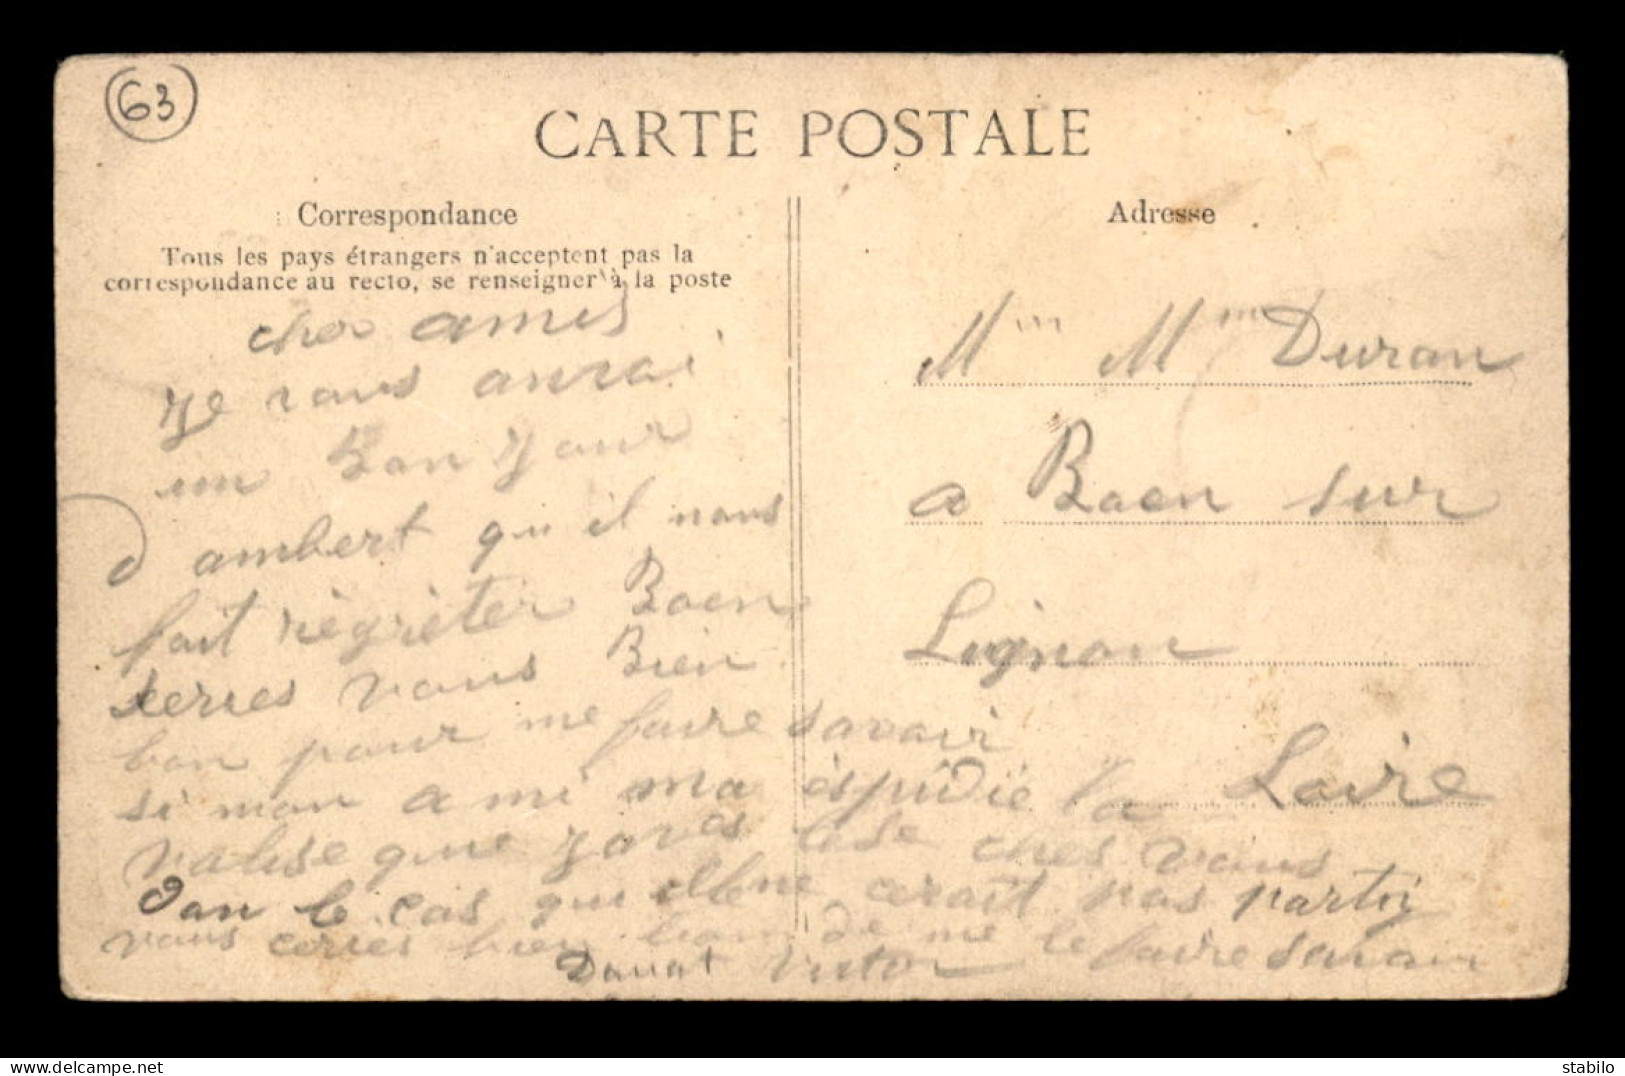 63
CARTE POSTALE
Correspondance
Tous les pays étrangers n'acceptent pas la
correspondance au recto, se renseigner à la poste
cher amis
je vous anvai
un Bon Jour
d ambert qu il nous
fait règrèter Boen
serres vous Bien
bon pour me faire savair
si mon ami ma èspidiè la
valise que javès lèse ches vous
dan le cas qui elle ne cerait pas parti
vous ceries bien bon de me le faire savair
Donat Victor
Adresse
Mm Mm Duran
a Boen sur
Lignon
Loire
www.delcampe.net
stabilo